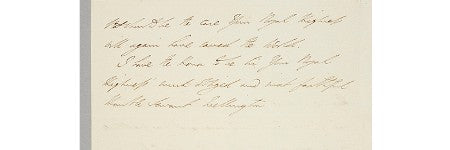 should be the case Your Royal Highness
will again have saved the World.
I have the Honor to be Sir Your Royal
Highness' much obliged and most faithful
Humble Servant Wellington